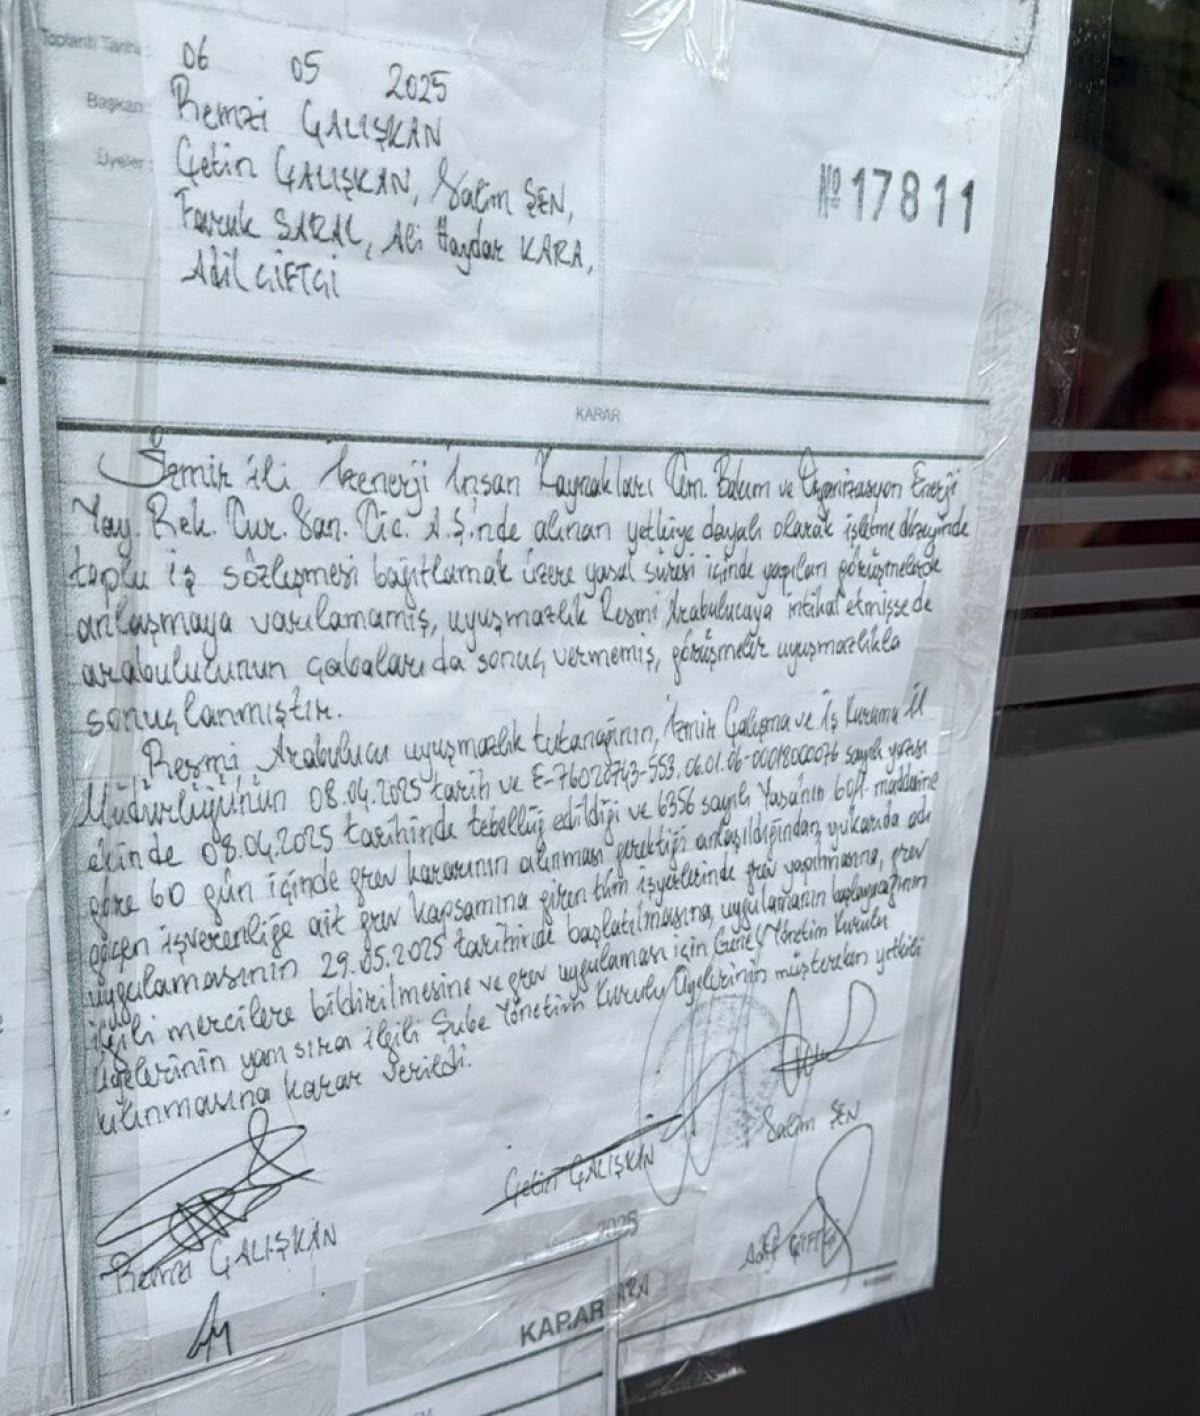 Toplantı Tarihi: 06 05 2025
Başkan: Remzi ÇALIŞKAN
Üyeler: Çetin ÇALIŞKAN, Salim ŞEN,
Faruk SARAL, Ali Haydar KARA,
Adil ÇİFTÇİ
№ 17811
KARAR
İzmir ili İzenerji İnsan Kaynakları Tem. Bakım ve Organizasyon Enerji
Yay. Rek. Tur. San. Tic. A.Ş.nde alınan yetkiye dayalı olarak işletme düzeyinde
toplu iş sözleşmesi bağıtlamak üzere yasal süresi içinde yapılan görüşmelerde
anlaşmaya varılamamış, uyuşmazlık Resmi Arabulucaya intikal etmişse de
arabulucunun çabaları da sonuç vermemiş, görüşmeler uyuşmazlıkla
sonuçlanmıştır.
Resmi Arabulucu uyuşmazlık tutanağının, İzmir Çalışma ve İş Kurumu İl
Müdürlüğünün 08.04.2025 tarih ve E-76020743-553.06.01.06-00018000076 sayılı yazısı
ekinde 08.04.2025 tarihinde tebellüğ edildiği ve 6356 sayılı Yasa'nın 60/1. maddesine
göre 60 gün içinde grev kararının alınması gerektiği anlaşıldığından, yukarıda adı
geçen işverenliğe ait grev kapsamına giren tüm işyerlerinde grev yapılmasına, grev
uygulamasının 29.05.2025 tarihinde başlatılmasına, uygulamanın başlayacağının
ilgili mercilere bildirilmesine ve grev uygulaması için Genel Yönetim Kurulu
Üyelerinin yanı sıra ilgili Şube Yönetim Kurulu Üyelerinin müştereken yetkili
kılınmasına karar verildi.
Salim ŞEN
Çetin ÇALIŞKAN
Remzi ÇALIŞKAN
2025
Adil ÇİFTÇİ
KARAR